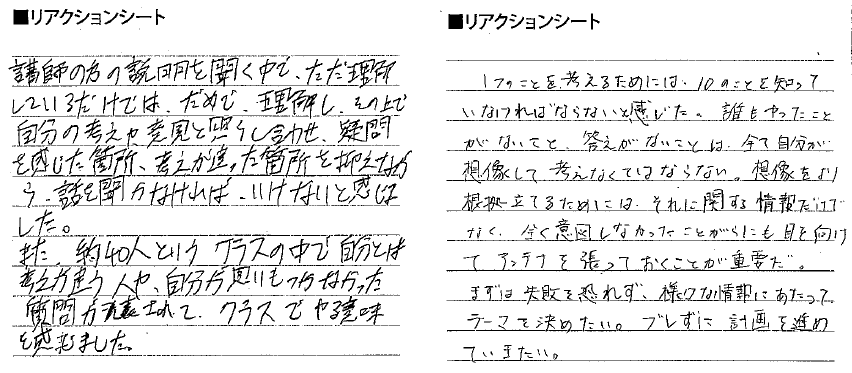 ■リアクションシート
講師の方の説明を聞く中で、ただ理解
しているだけでは、だめで、理解し、その上で
自分の考えや意見と照らし合わせ、疑問
を感じた箇所、考えが違った箇所を抑えなが
ら、話を聞かなければ、いけないと感じま
した。
また、約40人という クラスの中で自分とは
考えが違う人や、自分が思いもつかなかった
質問が 発表されて、クラスで やる意味
を感じました。
■リアクションシート
1つのことを考えるためには、10のことを知って
いなければならないと感じた。誰もやったこと
がないこと、答えがないことは、全て自分が
想像して考えなくてはならない。想像をより
根拠立てるためには、それに関する情報だけで
なく、全く意図しなかったことがらにも目を向け
てアンテナを張っておくことが重要だ。
まずは失敗を恐れず、様々な情報にあたって
テーマを決めたい。ブレずに計画を進め
ていきたい。